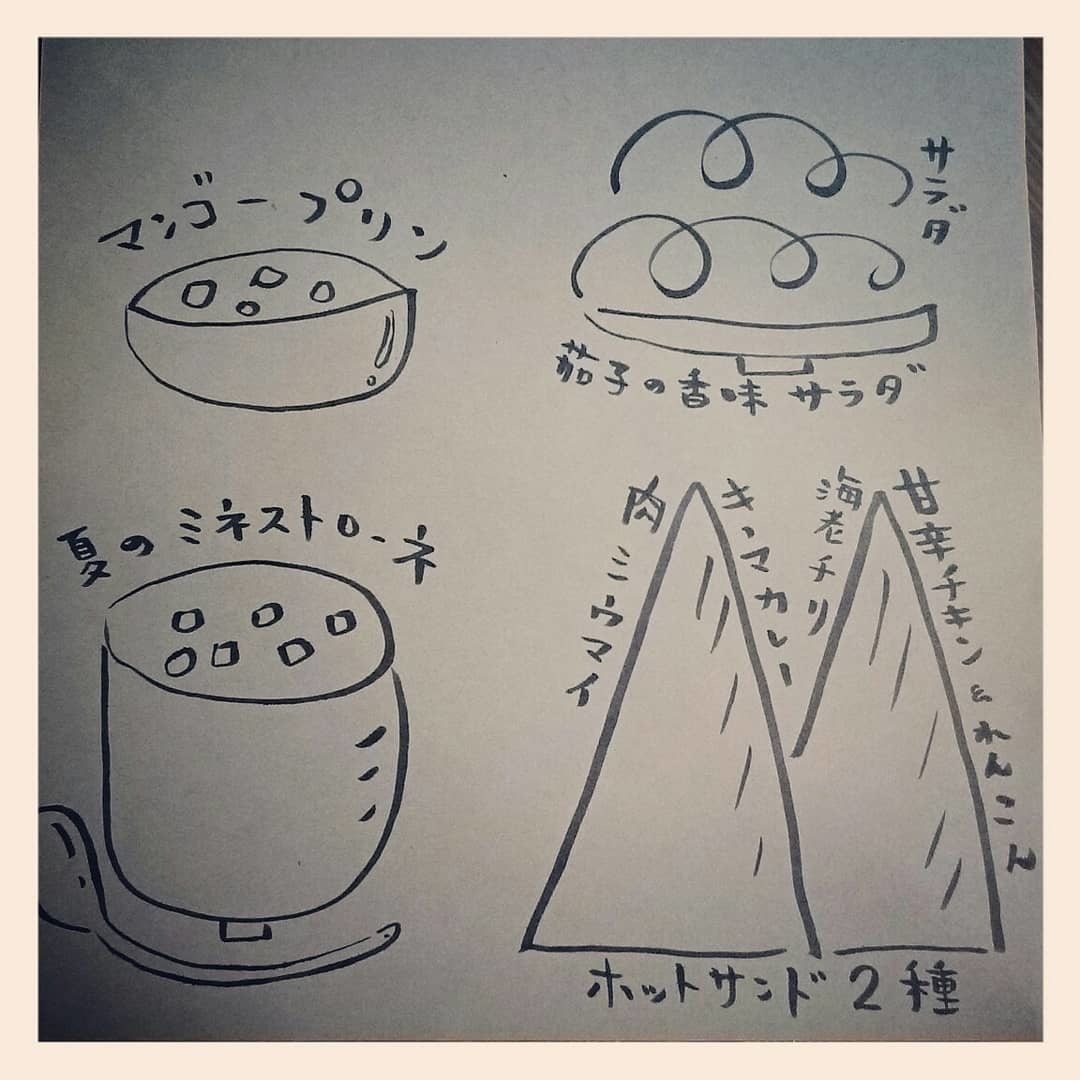 マンゴープリン
サラダ
茄子の香味サラダ
夏のミネストローネ
肉シウマイ
キーマカレー
海老チリ
甘辛チキン&れんこん
ホットサンド2種